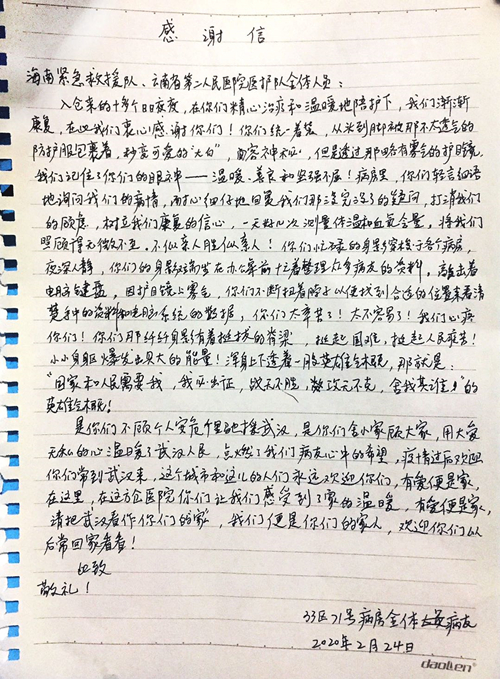 感谢信
海南紧急救援队、云南省第二人民医院医护队全体人员：
入仓来的十多个日日夜夜，在你们精心治疗和温暖地陪护下，我们渐渐
康复，在此我们衷心感谢你们！你们统一着装，从头到脚被那不太透气的
防护服包裹着，秒变可爱的“大白”，面容神秘，但是透过那略有雾气的护目镜，
我们记住了你们的眼神——温暖、善良和坚强不屈！病房里，你们轻言细语
地询问我们的病情，耐心细仔地回复我们那没完没了的疑问，打消我们
的顾虑，树立我们康复的信心，一天好几次测量体温和血氧含量，将我们
照顾得无微不至，不似亲人胜似亲人！你们忙碌的身影穿梭于各个病房，
夜深人静，你们的身影端坐在办公桌前忙着整理众多病友的资料，敲击着
电脑键盘，因护目镜上雾气，你们不断扭着脖子以便找到合适的位置来看清
楚手中的资料和电脑系统的数据，你们太辛苦了！太不容易了！我们心疼
你们！你们那纤纤身影有着挺拔的脊梁，挺起国难，挺起人民疾苦！
小小身躯爆发出巨大的能量！浑身上下透着一股英雄气慨，那就是：
“国家和人民需要我，我必出征，战无不胜，攻无不克，舍我其谁”的
英雄气慨！
是你们不顾个人安危千里驰援武汉，是你们舍小家顾大家，用大爱
无私的心温暖了武汉人民，点燃了我们病友心中的希望，疫情过后欢迎
你们常到武汉来，这个城市和这儿的人们永远欢迎你们，有爱便是家，
在这里，在这方仓医院你们让我们感受到了家的温暖，有爱便是家，
请把武汉看作你们的“家”，我们便是你们的家人，欢迎你们以
后常回家看看！
此致
敬礼！
33区71号病房全体病友
2020年2月24日
daolen